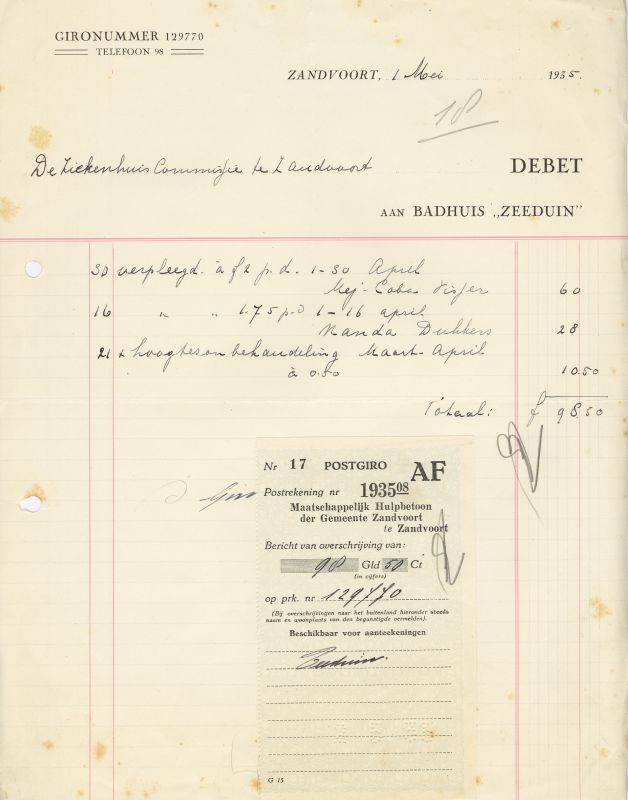 GIRONUMMER 129770
TELEFOON 98
ZANDVOORT, 1 Mei 1935.
18
De Ziekenhuis Commissie te Zandvoort
DEBET
AAN BADHUIS „ZEEDUIN"
30 verpleegd. à f 2 p. d. 1-30 April
Mej. Coba Visser 60
16 " " 1.75 p. d 1-16 april
Nanda Dukkers 28
21 x hoogtezon behandeling Maart-April
à 0.50 10.50
Totaal: f 98.50
Giro
Nr 17 POSTGIRO AF
Postrekening nr 193508
Maatschappelijk Hulpbetoon
der Gemeente Zandvoort
te Zandvoort
Bericht van overschrijving van:
98 Gld 50 Ct
(in cijfers)
op prk. nr 129770
(Bij overschrijvingen naar het buitenland hieronder steeds
naam en woonplaats van den begunstigde vermelden).
Beschikbaar voor aanteekeningen
Zeeduin.
G 15